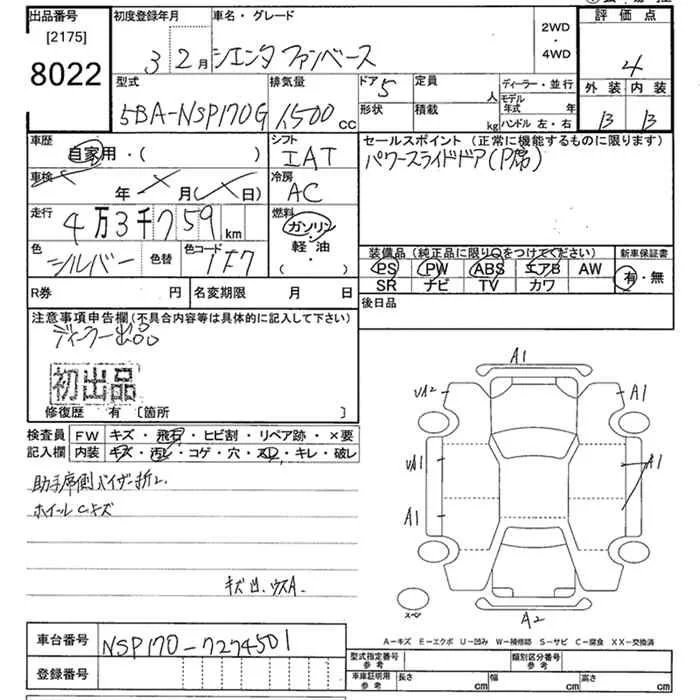 出品番号 初度登録年月 車名・グレード 2WD・4WD 評価点
[2175]
8022
3 2月 シエンタ ファンベース 4
型式 排気量 ドア 5 定員 人 ディーラー・並行 外装 内装
5BA-NSP170G 1,500 CC 形状 積載 kg モデル年式 年 ハンドル 左・右 B B
車歴 シフト セールスポイント (正常に機能するものに限ります)
自家用・( ) IAT パワースライドドア(P席)
車検 年 月( 日) 冷房 AC
走行 4万3千759km 燃料 ガソリン・軽油・( )
色 シルバー 色替 色コード 1F7
装備品 (純正品に限り○をつけてください) 新車保証書
PS PW ABS エアB AW 有・無
SR ナビ TV カワ
R券 円 名変期限 月 日 後日品
注意事項申告欄(不具合内容等は具体的に記入して下さい)
ディーラー出品
初出品
修復歴 有 [箇所 ]
検査員記入欄 FW キズ・飛石・ヒビ割・リペア跡・×要
内装 キズ・汚レ・コゲ・穴・スレ・キレ・破レ
助手席側バイザー折レ
ホイールCキズ
キズ凹 ウスA.
A1
UA2 A1
UA1 A1
A1
A2
スペア
A-キズ E-エクボ U-凹み W-補修跡 S-サビ C-腐食 XX-交換済
車台番号 NSP170-7274501
登録番号
型式指定番号 参考 類別区分番号 参考
車庫証明用 参考 長さ cm 幅 cm 高さ cm